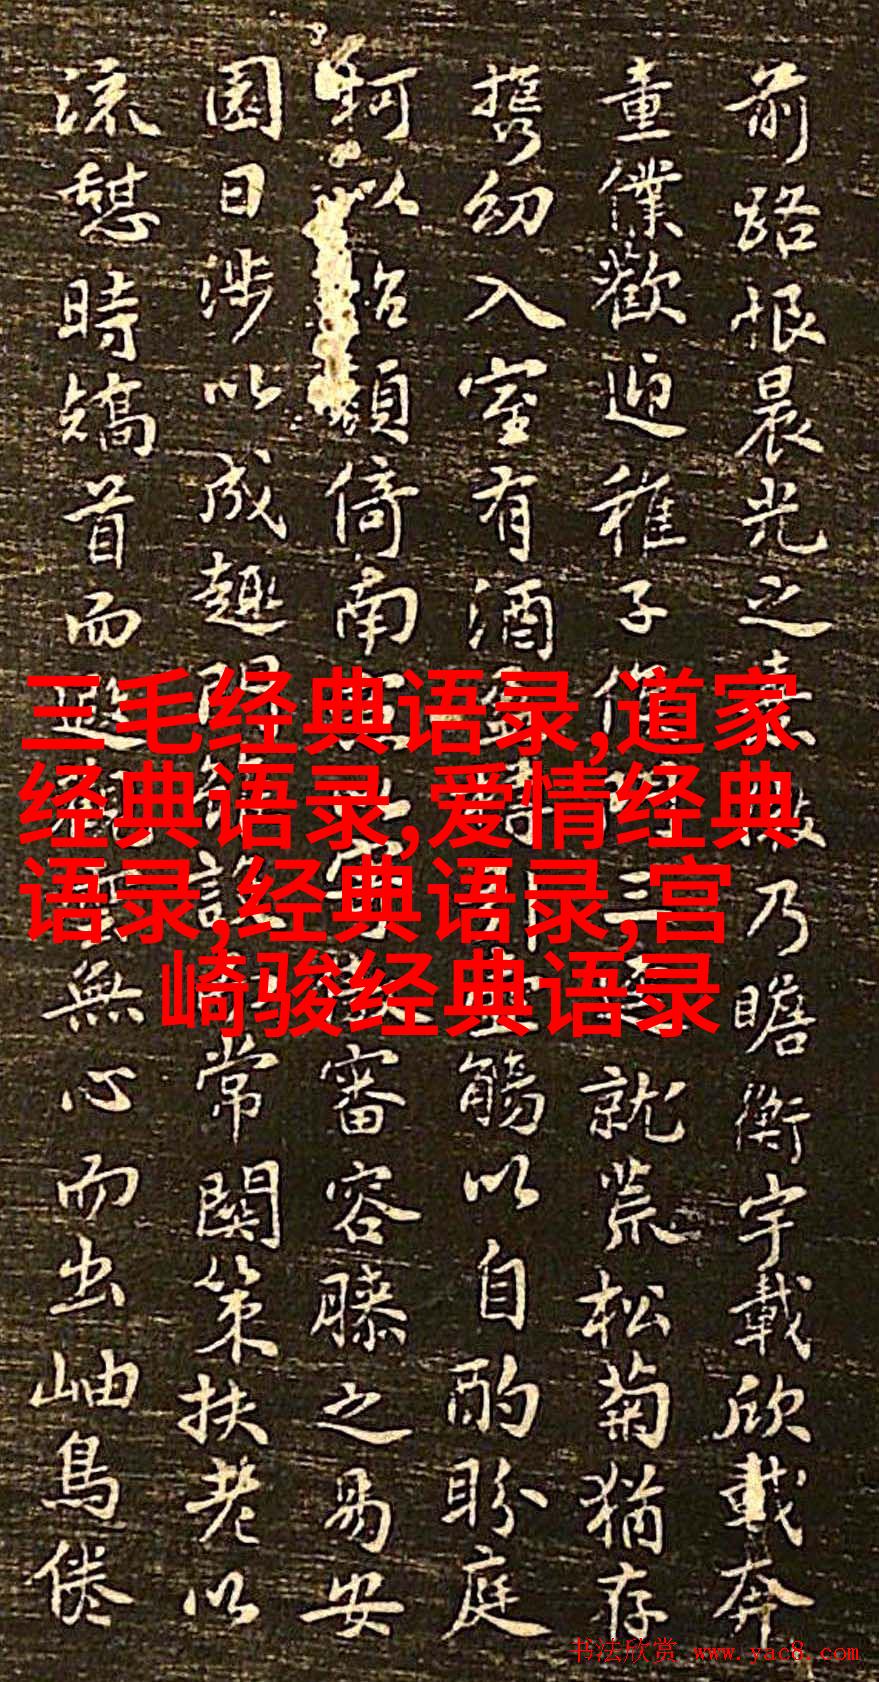 前路恨晨光之微乃瞻衡宇載欣載奔
童僕歡迎稚子候門三就荒松菊猶存
携幼入室有酒引壺觴以自酌盼庭
柯以怡顏倚南寄審容膝之易安
園日涉以成趣門設常関策扶老以
流憩時矯首而遐無心而出岫鳥倦
三毛经典语录,道家
经典语录,爱情经典
语录,经典语录,宫
崎骏经典语录
书法欣赏 www.yac8.com